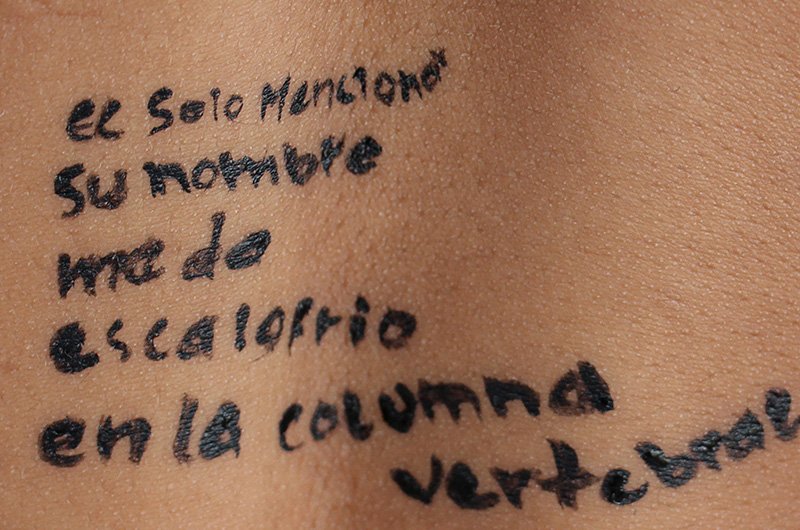 el solo Mencionar
su nombre
me da
escalofrio
en la columna
vertebral